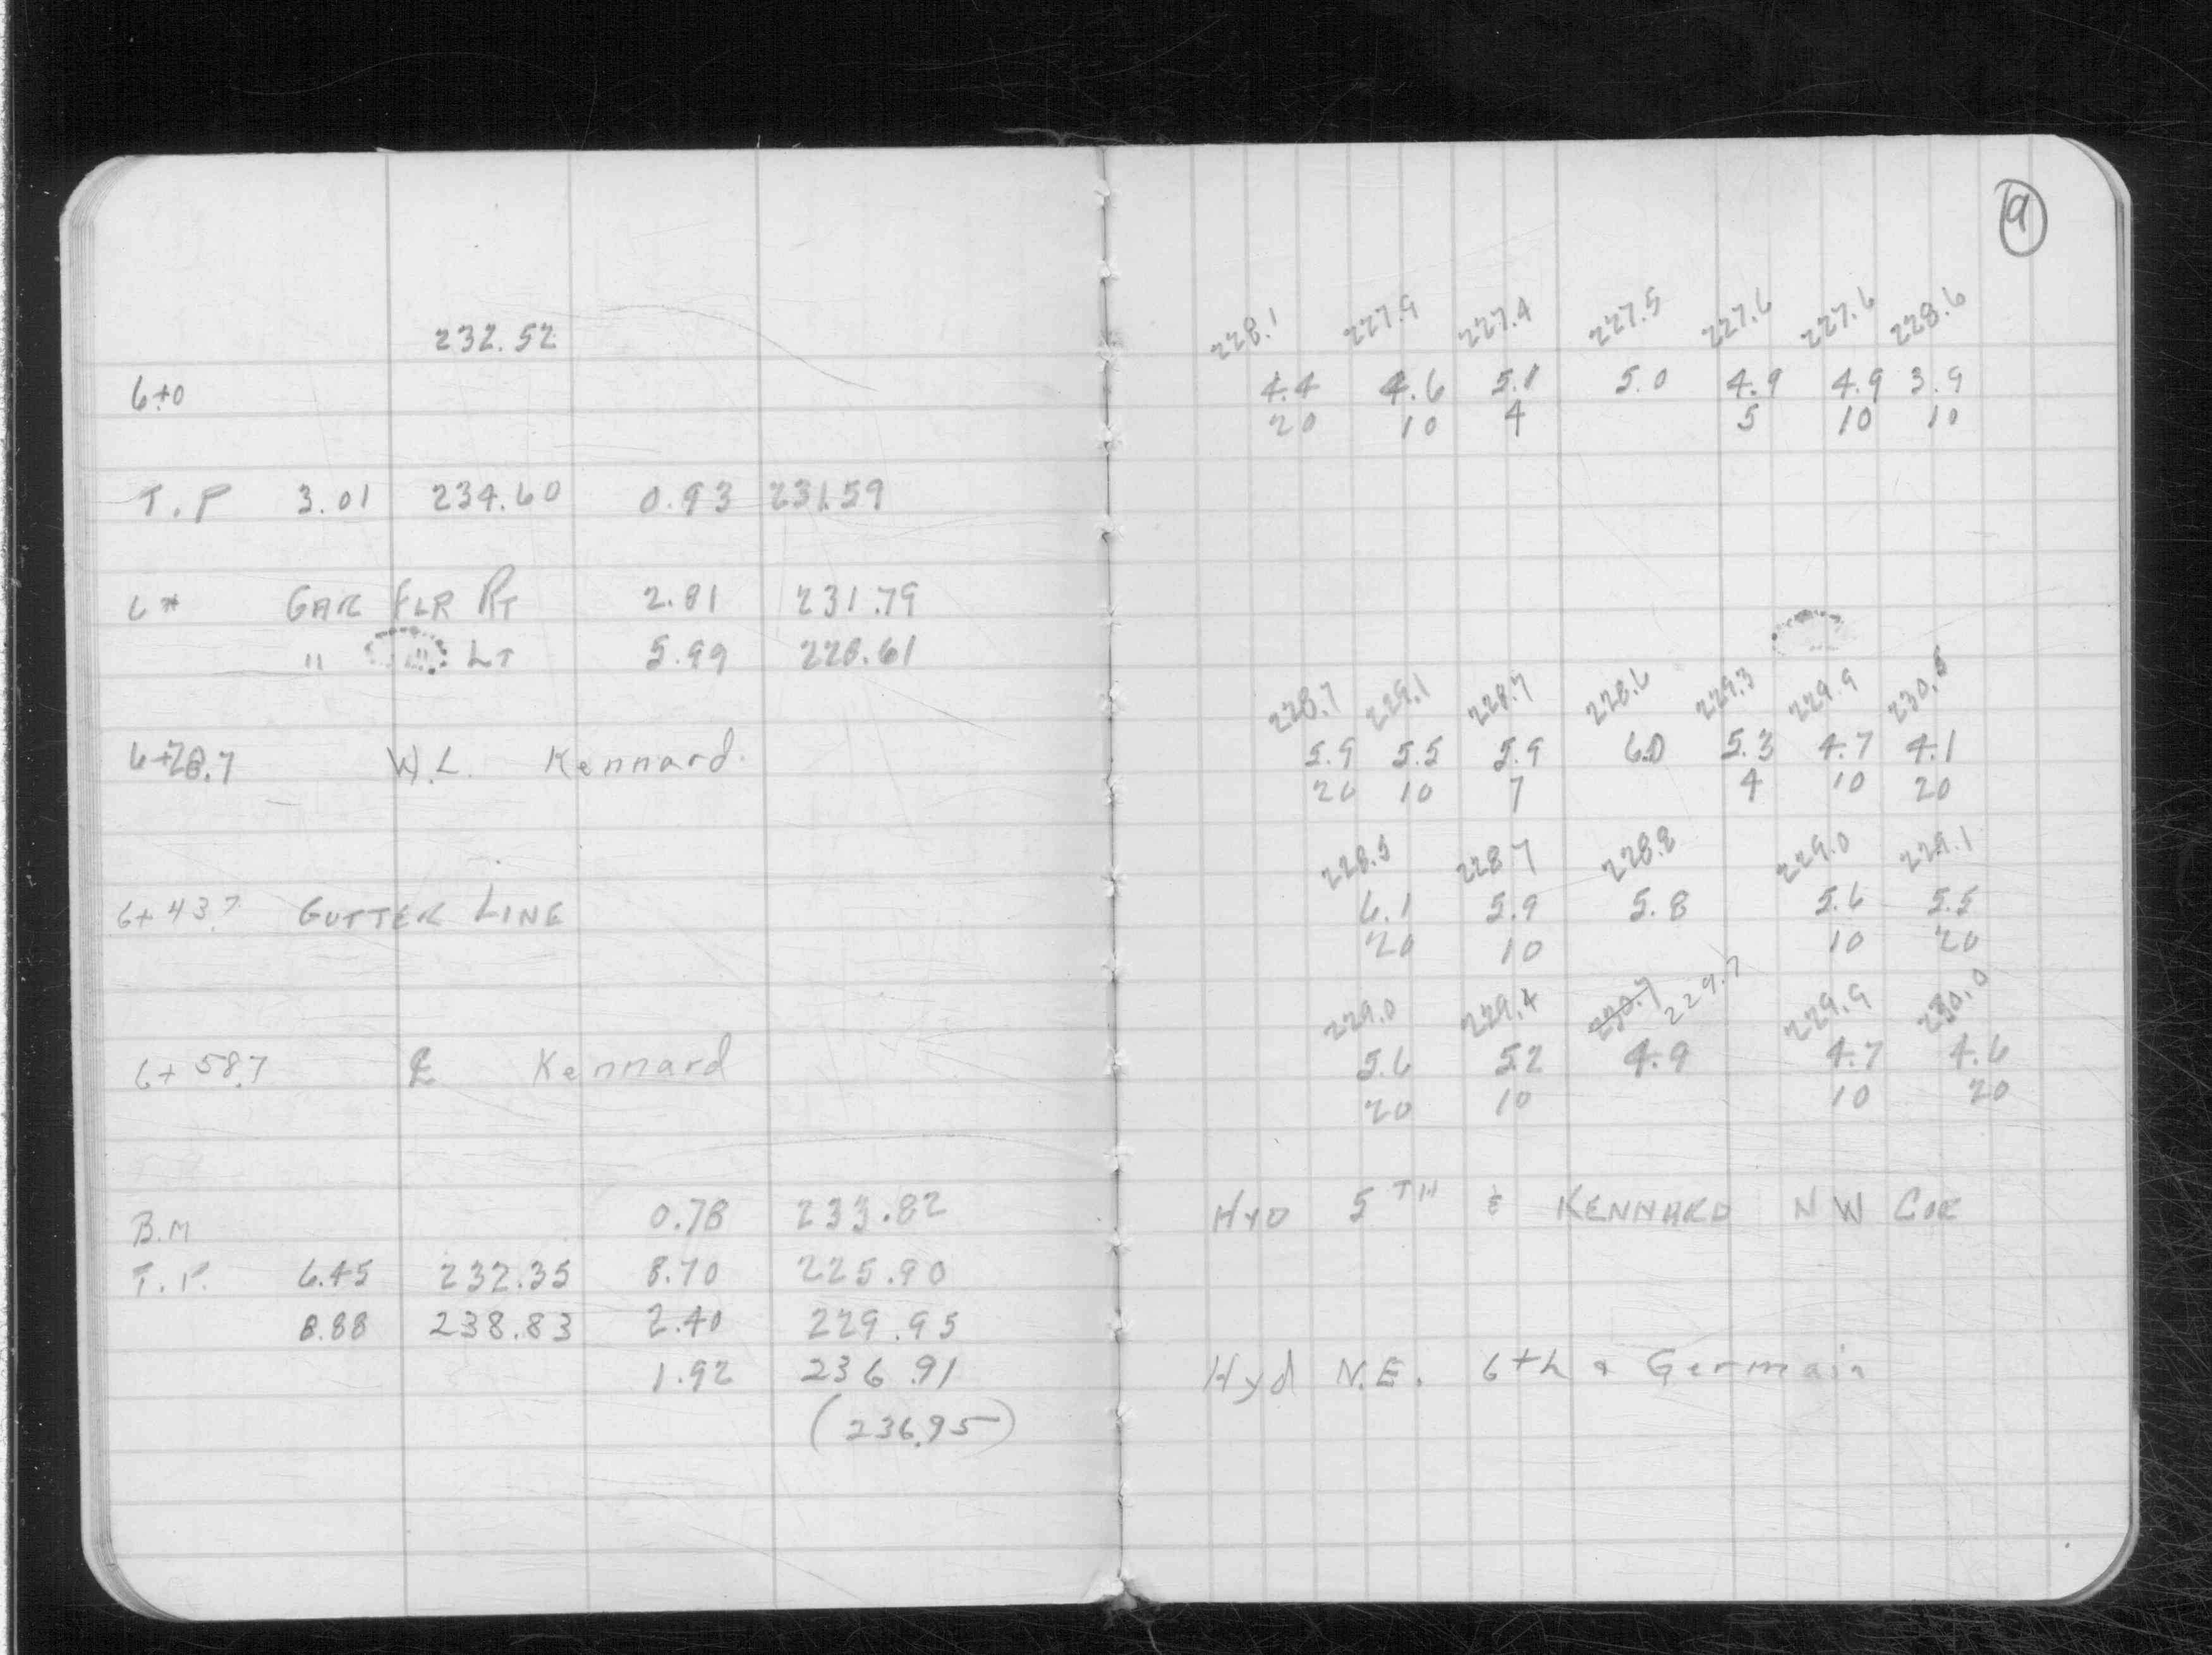 9
232.52
228.1 227.9 227.4 227.5 227.6 227.6 228.6
6+0 4.4 4.6 5.1 5.0 4.9 4.9 3.9
20 10 4 5 10 10
T.P 3.01 234.60 0.93 231.59
6* GAR FLR RT 2.81 231.79
" " LT 5.99 228.61
228.7 229.1 228.7 228.6 229.3 229.9 230.5
6+28.7 W.L. Kennard. 5.9 5.5 5.9 6.0 5.3 4.7 4.1
20 10 7 4 10 20
228.5 228.7 228.8 229.0 229.1
6+43.7 GUTTER LINE 6.1 5.9 5.8 5.6 5.5
20 10 10 20
229.0 229.4 230.7 229.7 229.9 230.0
6+58.7 ℄ Kennard 5.6 5.2 4.9 4.7 4.6
20 10 10 20
B.M 0.78 233.82 HYD 5TH & KENNARD NW COR
T.P. 6.45 232.35 8.70 225.90
8.88 238.83 2.40 229.95
1.92 236.91 Hyd N.E. 6th & Germain
(236.95)